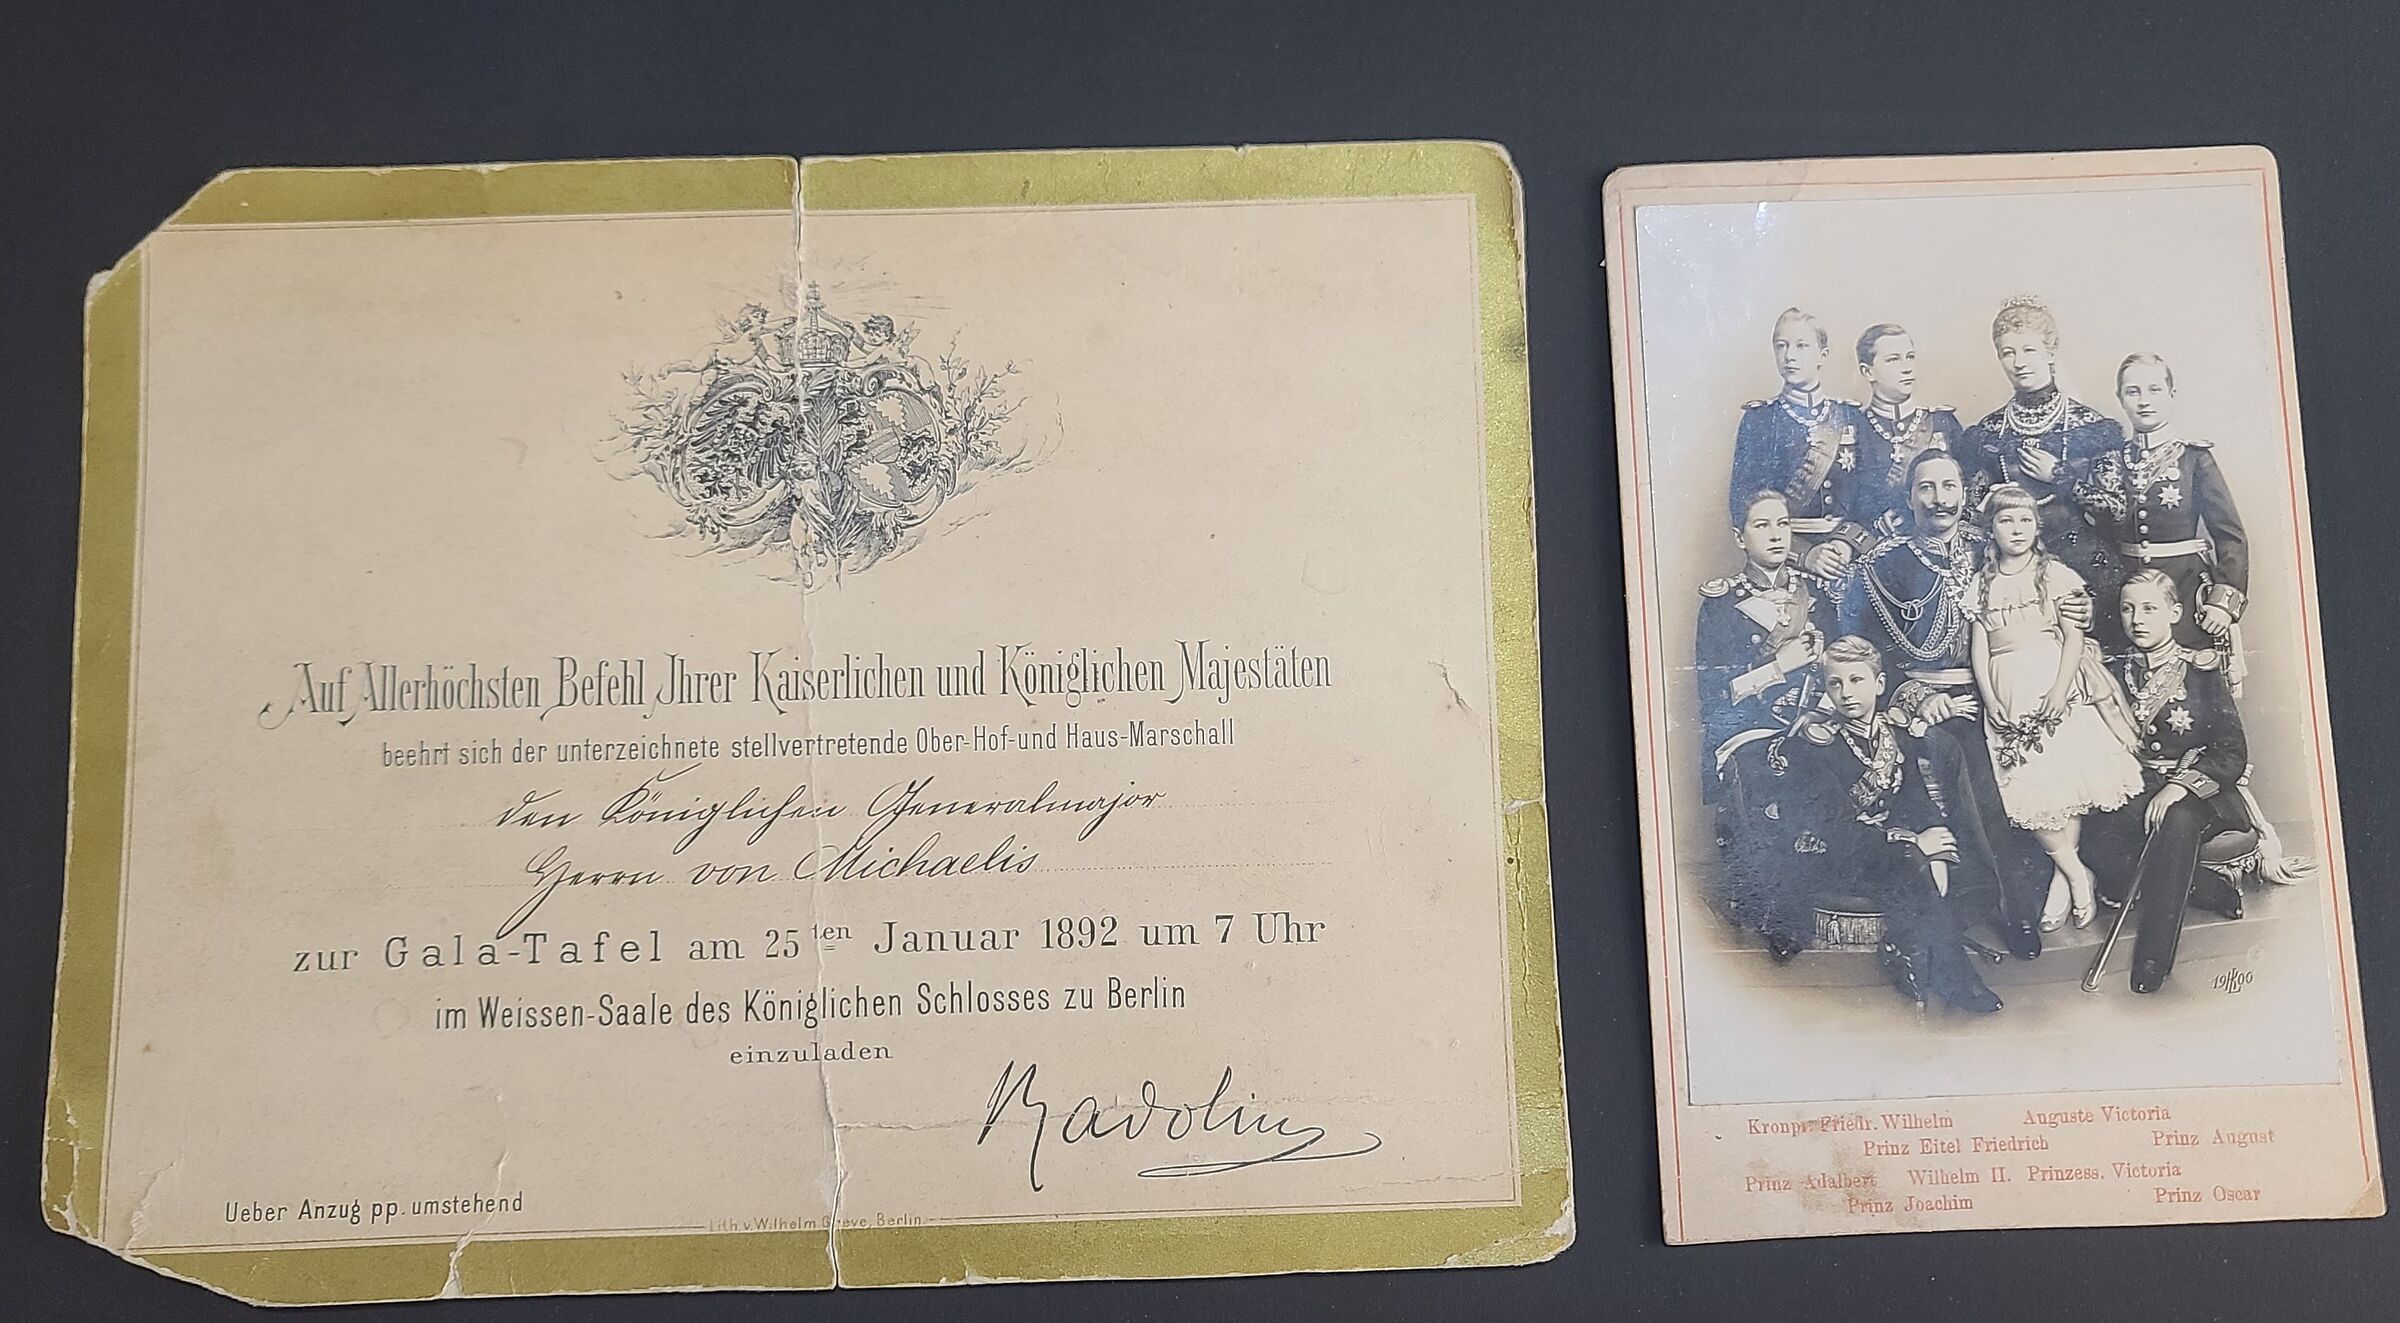 Auf Allerhöchsten Befehl Jhrer Kaiserlichen und Königlichen Majestäten
beehrt sich der unterzeichnete stellvertretende Ober-Hof-und Haus-Marschall
den Königlichen Generalmajor
Herrn von Michaelis
zur Gala-Tafel am 25ten Januar 1892 um 7 Uhr
im Weissen-Saale des Königlichen Schlosses zu Berlin
einzuladen
Radolin
Ueber Anzug pp. umstehend
Lith v. Wilhelm Greve, Berlin
1900
Kronpr. Friedr. Wilhelm Auguste Victoria
Prinz Eitel Friedrich Prinz August
Prinz Adalbert Wilhelm II. Prinzess. Victoria
Prinz Joachim Prinz Oscar